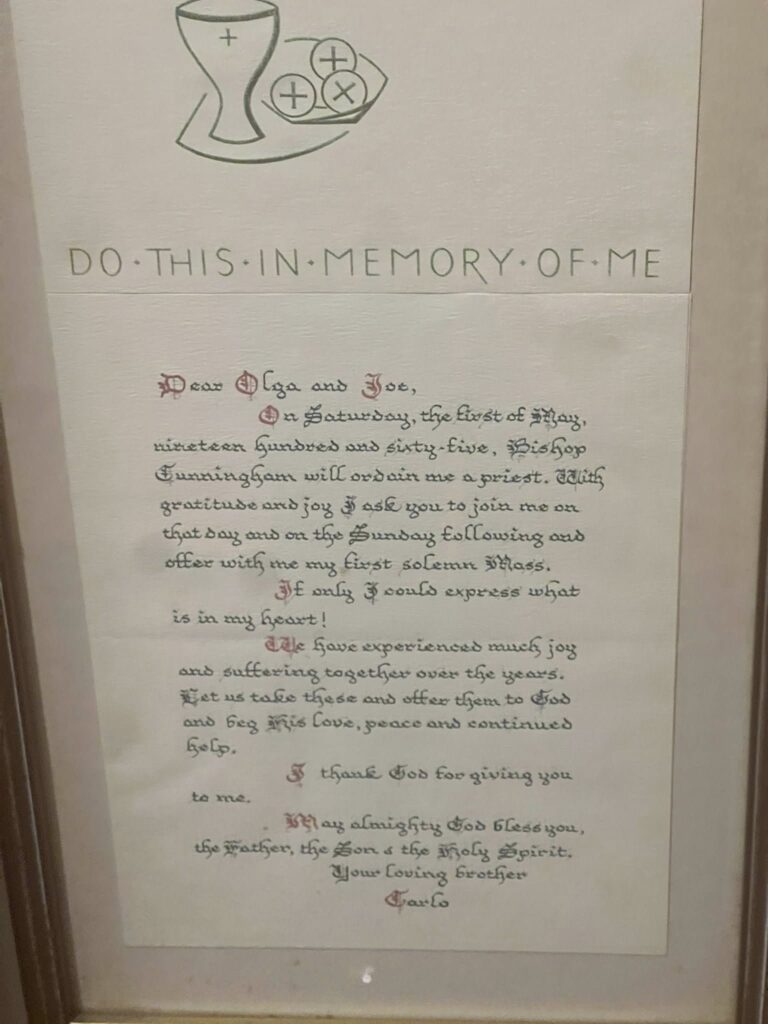 DO · THIS · IN · MEMORY · OF · ME
Dear Olga and Joe,
On Saturday, the first of May,
nineteen hundred and sixty-five, Bishop
Cunningham will ordain me a priest. With
gratitude and joy I ask you to join me on
that day and on the Sunday following and
offer with me my first solemn Mass.
If only I could express what
is in my heart!
We have experienced much joy
and suffering together over the years.
Let us take these and offer them to God
and beg His love, peace and continued
help.
I thank God for giving you
to me.
May almighty God bless you,
the Father, the Son & the Holy Spirit.
Your loving brother
Carlo